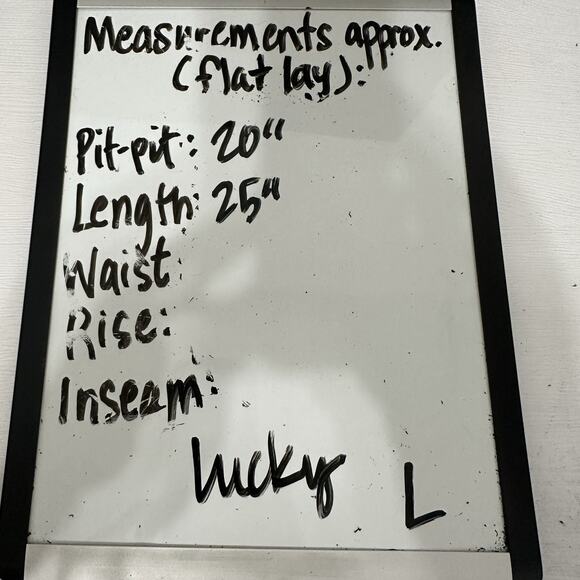 Measurements approx.
(flat lay):
Pit-pit: 20"
Length: 25"
Waist:
Rise:
Inseam:
Lucky L